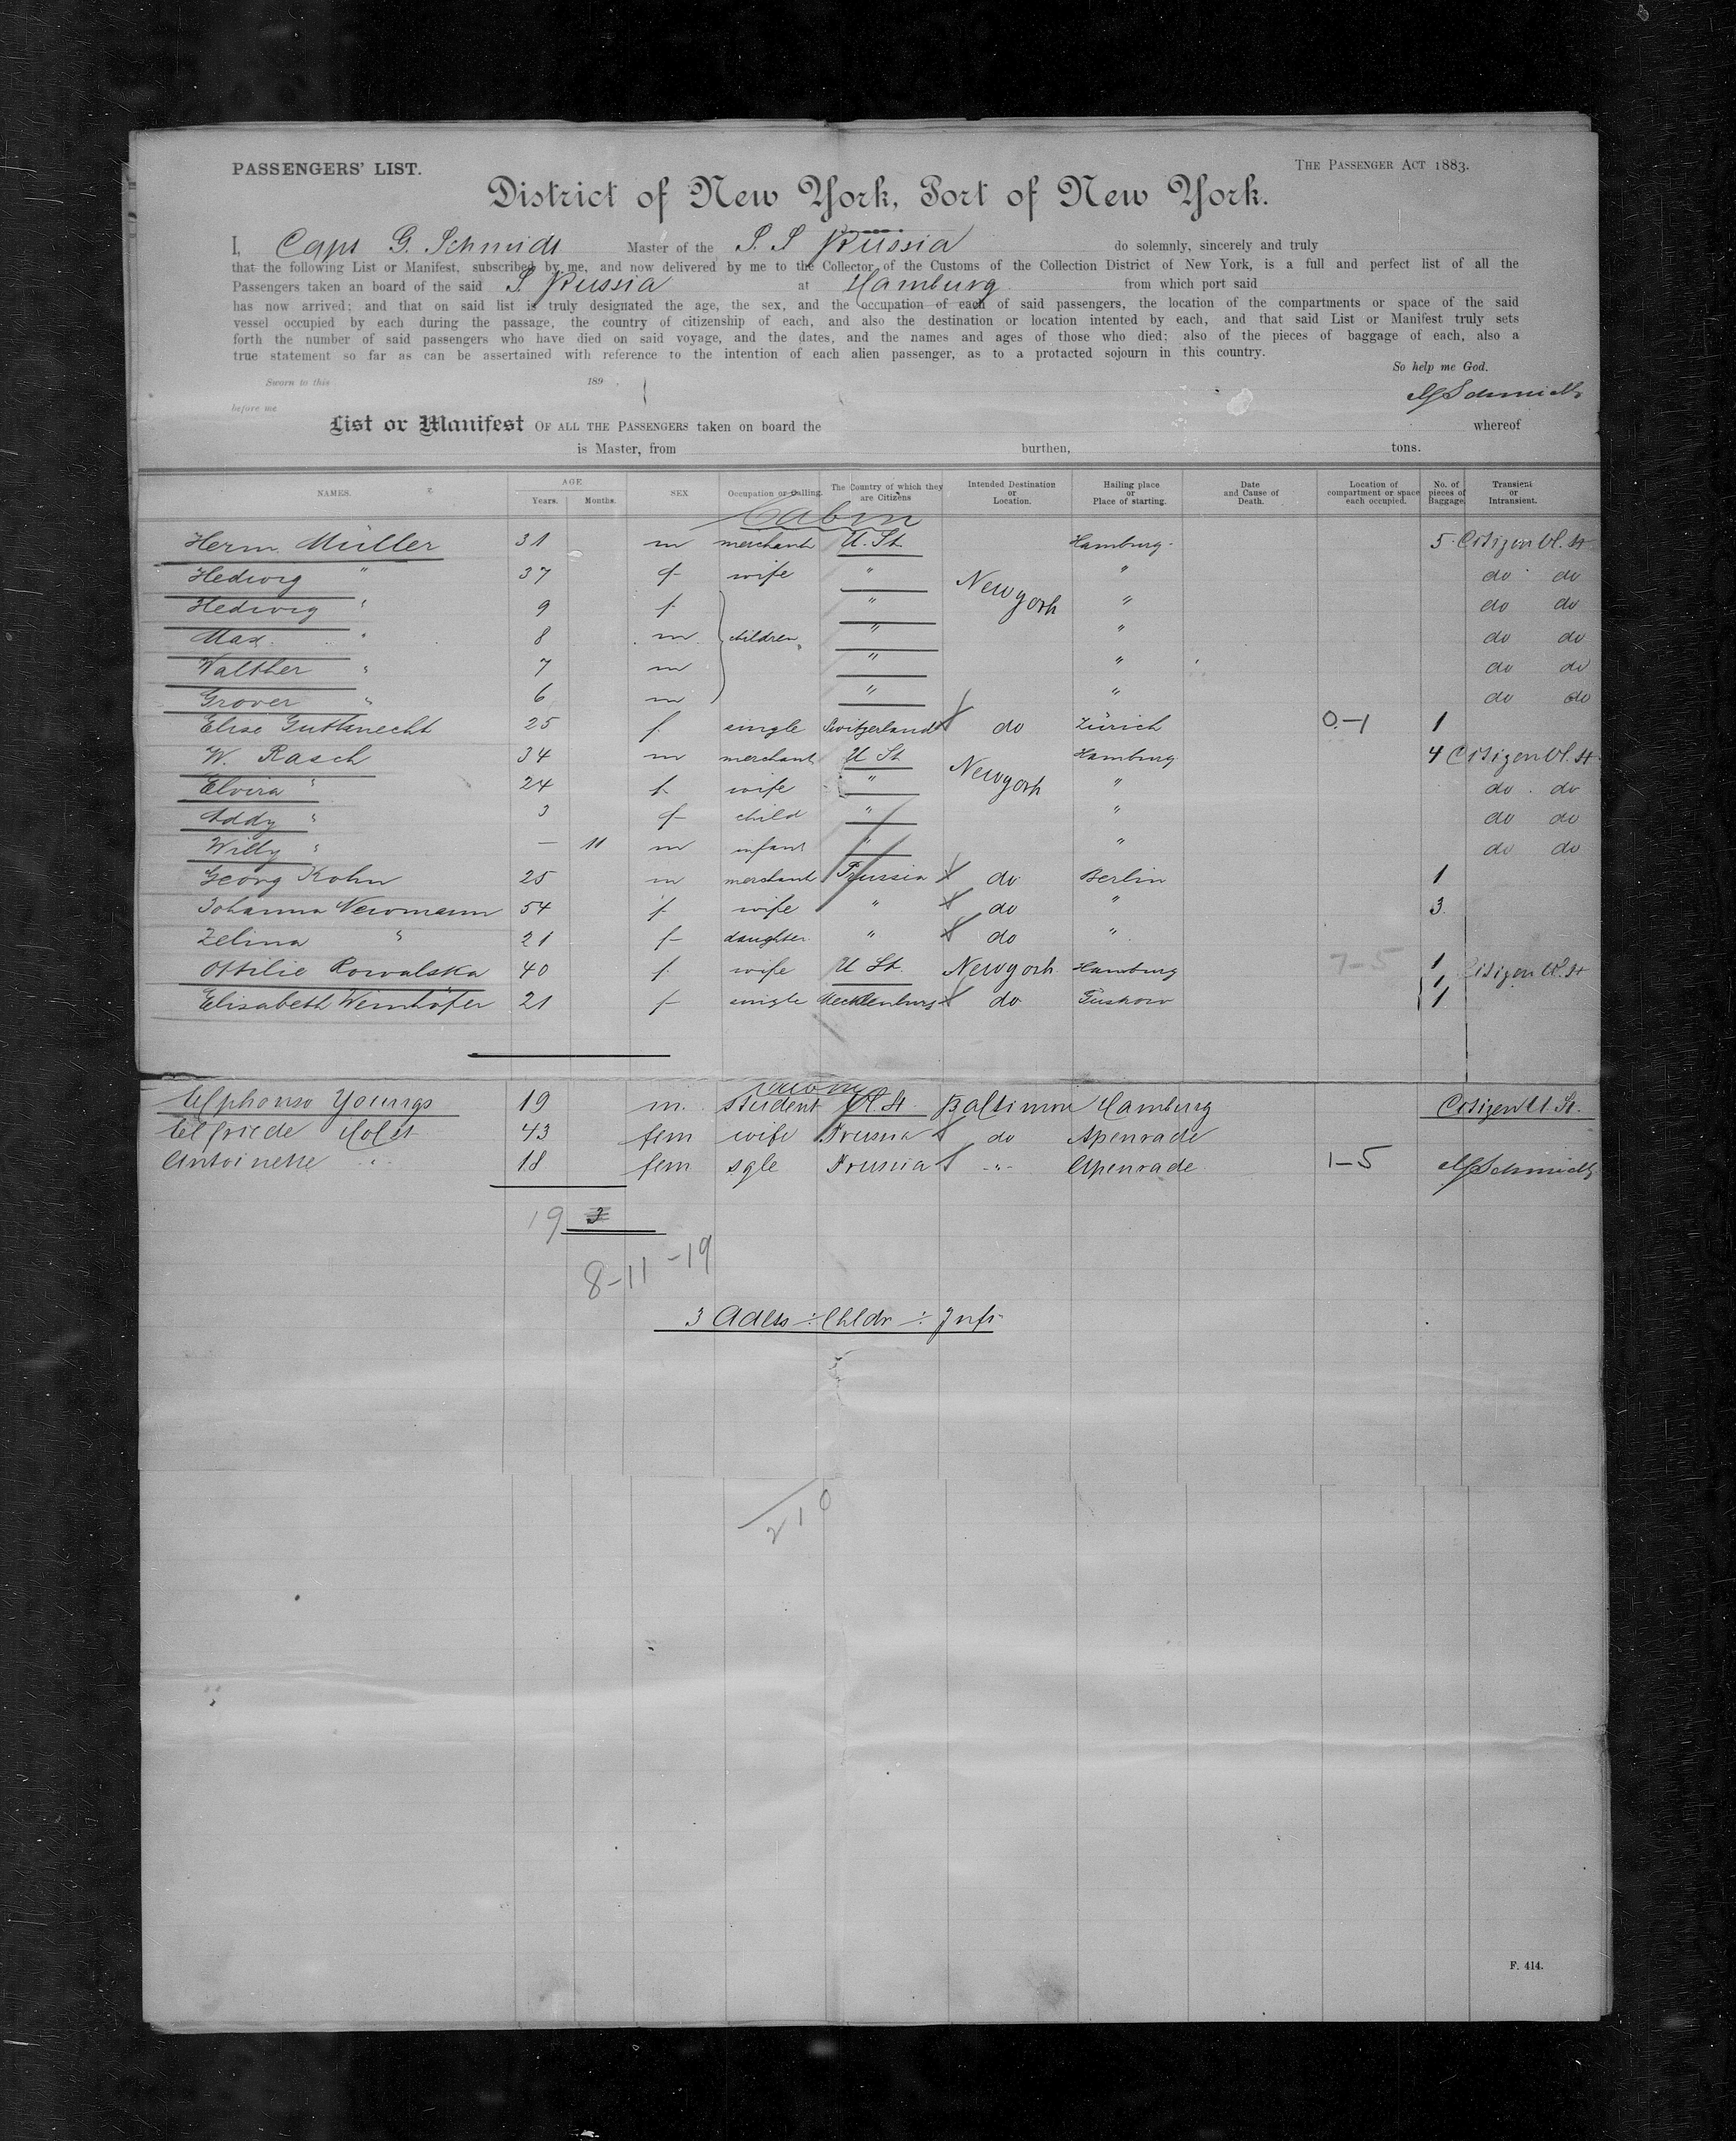 PASSENGERS' LIST.
THE PASSENGER ACT 1883.
District of New York, Port of New York.
I, Capt G. Schmidt Master of the S. S Russia do solemnly, sincerely and truly
that the following List or Manifest, subscribed by me, and now delivered by me to the Collector of the Customs of the Collection District of New York, is a full and perfect list of all the
Passengers taken an board of the said S Russia at Hamburg from which port said
has now arrived; and that on said list is truly designated the age, the sex, and the occupation of each of said passengers, the location of the compartments or space of the said
vessel occupied by each during the passage, the country of citizenship of each, and also the destination or location intented by each, and that said List or Manifest truly sets
forth the number of said passengers who have died on said voyage, and the dates, and the names and ages of those who died; also of the pieces of baggage of each, also a
true statement so far as can be assertained with reference to the intention of each alien passenger, as to a protacted sojourn in this country.
So help me God.
Sworn to this 189
GSchmidt
before me
List or Manifest OF ALL THE PASSENGERS taken on board the whereof
is Master, from burthen, tons.
NAMES. AGE Years. Months. SEX Occupation or Calling. The Country of which they are Citizens Intended Destination or Location. Hailing place or Place of starting. Date and Cause of Death. Location of compartment or space each occupied. No. of pieces of Baggage Transient or Intransient.
Cabin
Herm. Müller 31 m merchant U. St. Hamburg 5 Citizen U. St
Hedwig " 37 f wife " Newyork " do do
Hedwig " 9 f. " " do do
Max " 8 m children " " do do
Walther " 7 m " " do do
Grover " 6 m " " do do
Elise Gutknecht 25 f. single Switzerland do Zürich 0-1 1
W. Rasch 34 m merchant U St Newyork Hamburg 4 Citizen U. St
Elvira " 24 f. wife " " do do
Addy " 3 f child " " do do
Willy " — 11 m infant " " do do
Georg Kohn 25 m merchant Prussia do Berlin 1
Johanna Newmann 54 f. wife " do " 3
Zelina " 21 f daughter " do "
Ottilie Kowalska 40 f. wife U St. Newyork Hamburg 7-5 1 Citizen U. St
Elisabeth Weinhöfer 21 f single Mecklenburg do Güstrow 1 1
Alphonso Youngs 19 m. student U. St. Baltimore Hamburg Citizen U. St.
Elfriede Holst 43 fem wife Prussia do Apenrade
Antoinette " 18 fem sgle Prussia " Apenrade 1-5 GSchmidt
19 3
8-11-19
3 Adlts ÷ Chldr ÷ Inft
210
F. 414.